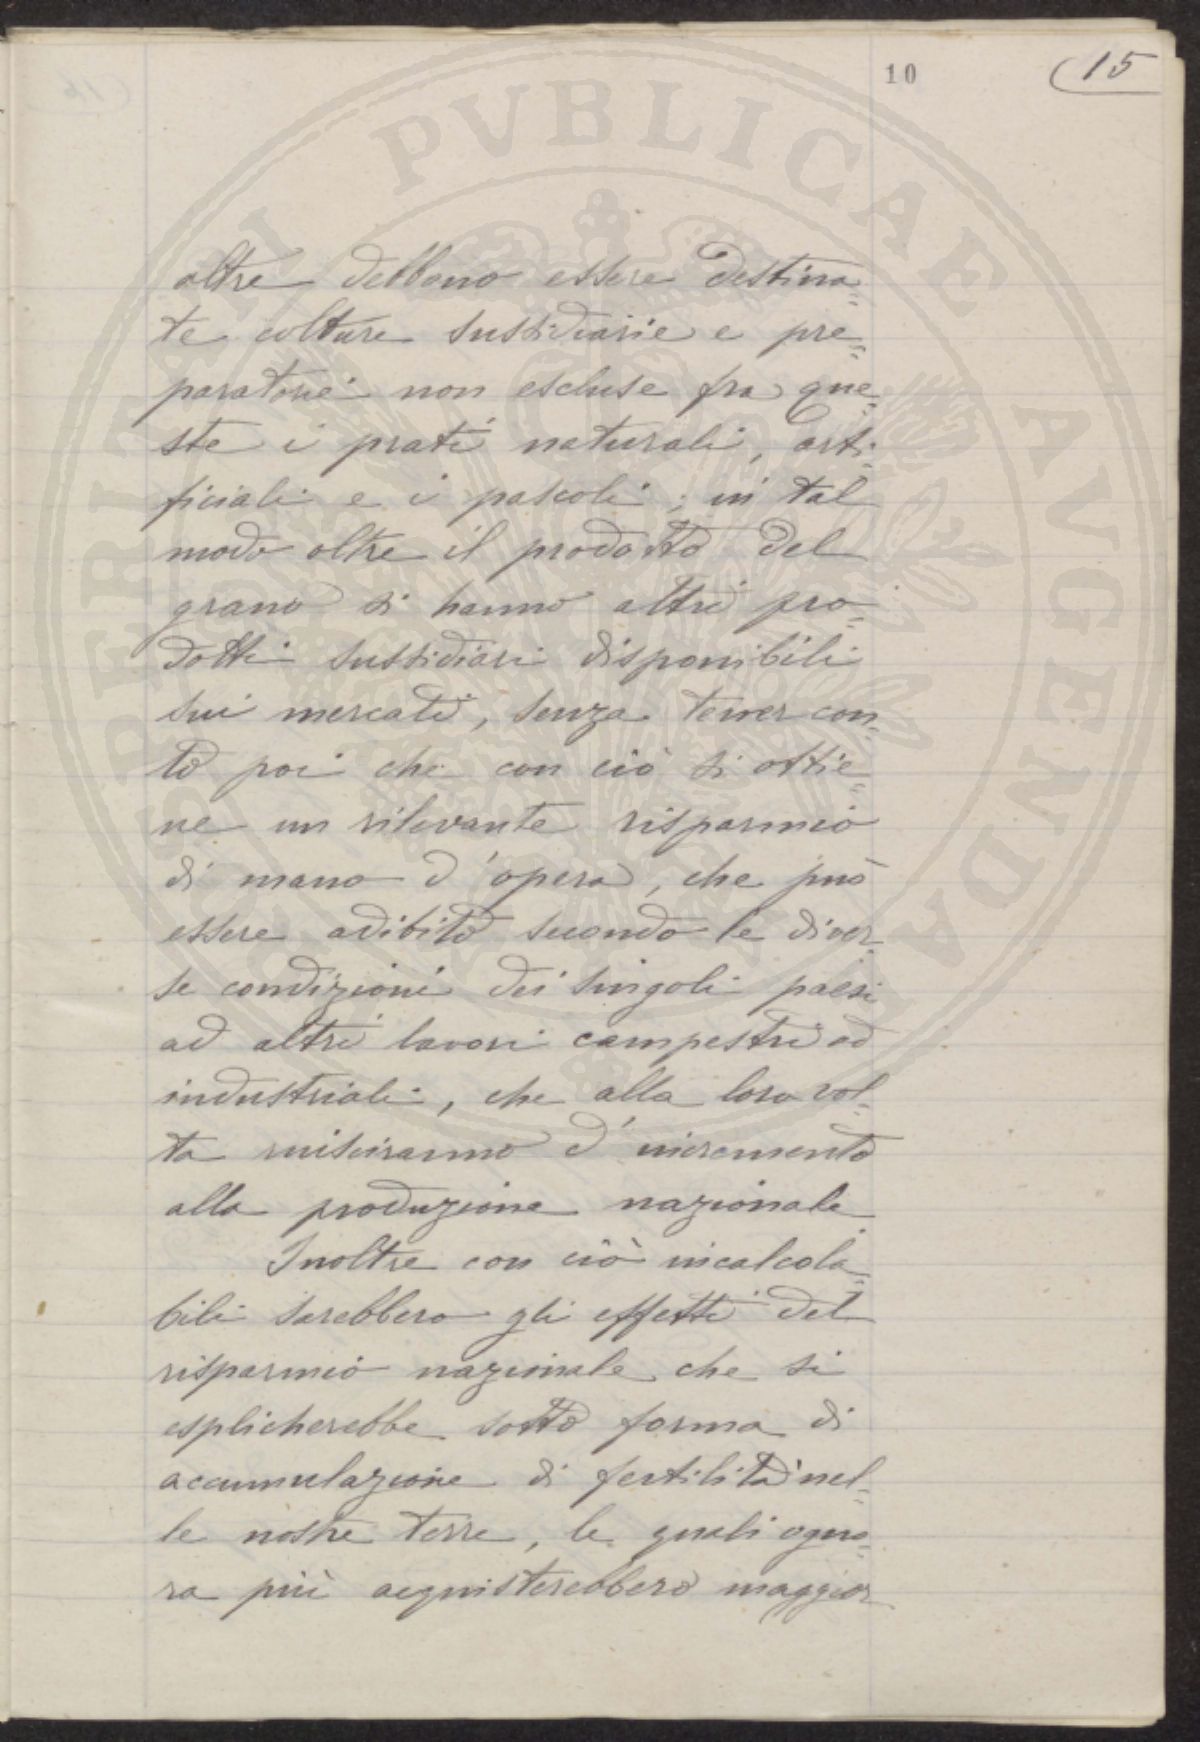 10
15
altre debbono essere destina=
te colture sussidiarie e pre=
paratorie non escluse fra que=
ste i prati naturali, arti=
ficiali e i pascoli; in tal
modo oltre il prodotto del
grano si hanno altri pro=
dotti sussidiari disponibili
sui mercati, senza tener con=
to poi che con ciò si ottie=
ne un rilevante risparmio
di mano d'opera, che può
essere adibito secondo le diver=
se condizioni dei singoli paesi
ad altri lavori campestri od
industriali, che alla loro vol=
ta riusciranno d'incremento
alla produzione nazionale
Inoltre con ciò incalcola=
bili sarebbero gli effetti del
risparmio nazionale che si
esplicherebbe sotto forma di
accumulazione di fertilità nel=
le nostre terre, le quali ogno=
ra più acquisterebbero maggior
PROSPERITATI PVBLICAE AVGENDAE